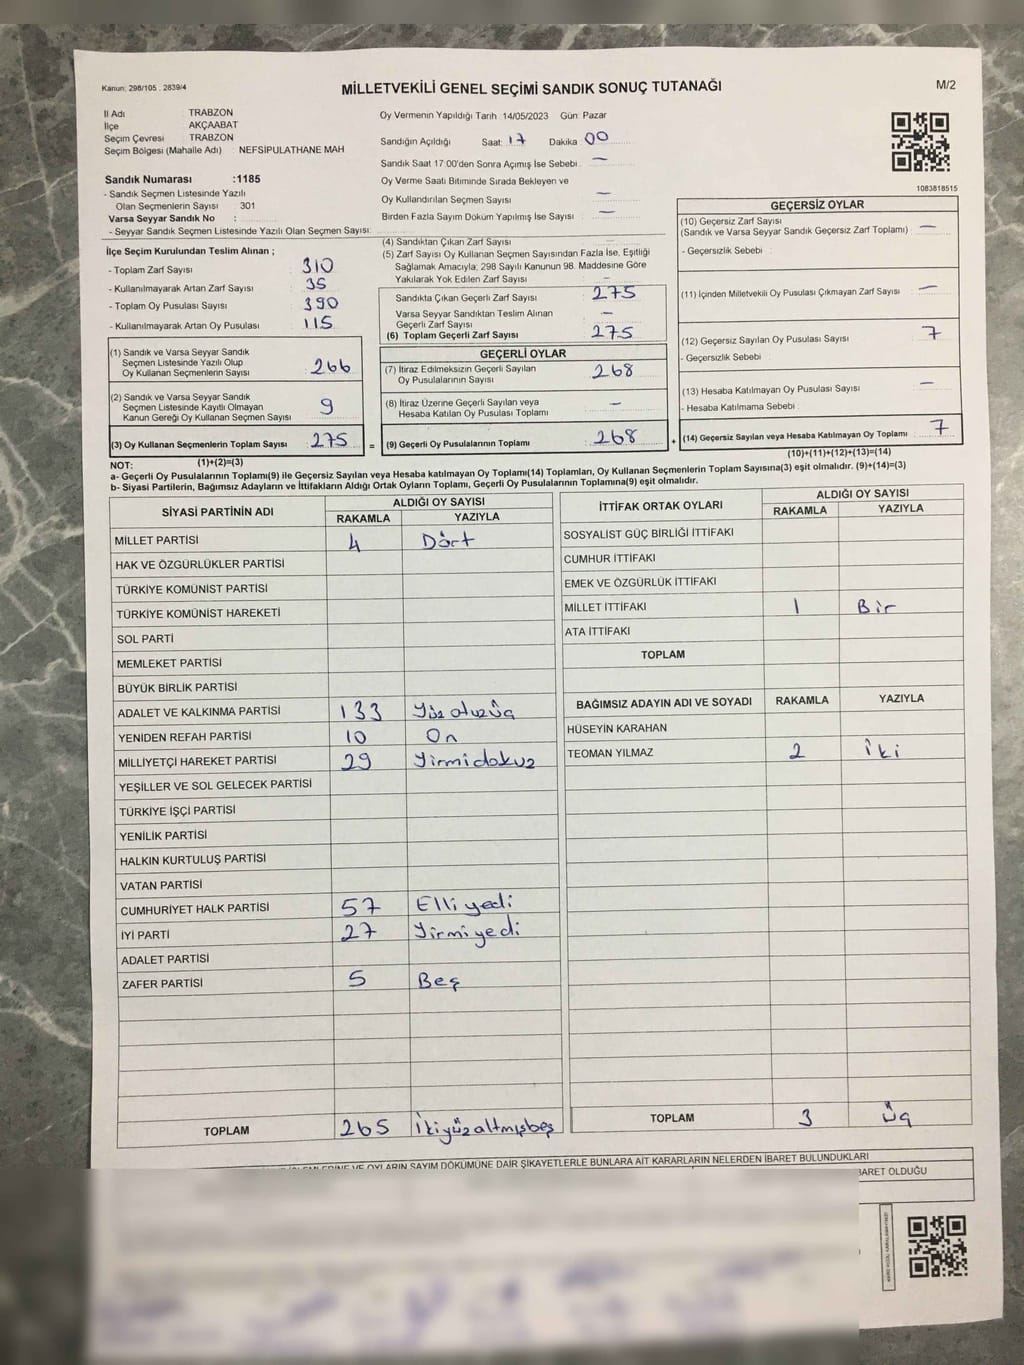 Kanun: 298/105 , 2839/4
MİLLETVEKİLİ GENEL SEÇİMİ SANDIK SONUÇ TUTANAĞI
M/2
İl Adı : TRABZON
İlçe : AKÇAABAT
Seçim Çevresi : TRABZON
Seçim Bölgesi (Mahalle Adı) : NEFSİPULATHANE MAH
Oy Vermenin Yapıldığı Tarih 14/05/2023 Gün: Pazar
Sandığın Açıldığı Saat: 17 Dakika : 00
Sandık Saat 17:00'den Sonra Açımış İse Sebebi : —
Oy Verme Saati Bitiminde Sırada Bekleyen ve
Oy Kullandırılan Seçmen Sayısı —
Birden Fazla Sayım Döküm Yapılmış İse Sayısı : —
1083818515
Sandık Numarası :1185
- Sandık Seçmen Listesinde Yazılı
Olan Seçmenlerin Sayısı : 301
Varsa Seyyar Sandık No :
- Seyyar Sandık Seçmen Listesinde Yazılı Olan Seçmen Sayısı:
İlçe Seçim Kurulundan Teslim Alınan ;
- Toplam Zarf Sayısı : 310
- Kullanılmayarak Artan Zarf Sayısı : 35
- Toplam Oy Pusulası Sayısı : 390
- Kullanılmayarak Artan Oy Pusulası : 115
(1) Sandık ve Varsa Seyyar Sandık
Seçmen Listesinde Yazılı Olup
Oy Kullanan Seçmenlerin Sayısı : 266
(2) Sandık ve Varsa Seyyar Sandık
Seçmen Listesinde Kayıtlı Olmayan
Kanun Gereği Oy Kullanan Seçmen Sayısı : 9
(3) Oy Kullanan Seçmenlerin Toplam Sayısı : 275
(1)+(2)=(3)
(4) Sandıktan Çıkan Zarf Sayısı
(5) Zarf Sayısı Oy Kullanan Seçmen Sayısından Fazla İse, Eşitliği
Sağlamak Amacıyla; 298 Sayılı Kanunun 98. Maddesine Göre
Yakılarak Yok Edilen Zarf Sayısı : —
Sandıkta Çıkan Geçerli Zarf Sayısı : 275
Varsa Seyyar Sandıktan Teslim Alınan
Geçerli Zarf Sayısı : —
(6) Toplam Geçerli Zarf Sayısı : 275
GEÇERLİ OYLAR
(7) İtiraz Edilmeksizin Geçerli Sayılan
Oy Pusulalarının Sayısı : 268
(8) İtiraz Üzerine Geçerli Sayılan veya
Hesaba Katılan Oy Pusulası Toplamı : —
= (9) Geçerli Oy Pusulalarının Toplamı : 268
GEÇERSİZ OYLAR
(10) Geçersiz Zarf Sayısı
(Sandık ve Varsa Seyyar Sandık Geçersiz Zarf Toplamı) : —
- Geçersizlik Sebebi :
(11) İçinden Milletvekili Oy Pusulası Çıkmayan Zarf Sayısı : —
(12) Geçersiz Sayılan Oy Pusulası Sayısı : 7
- Geçersizlik Sebebi :
(13) Hesaba Katılmayan Oy Pusulası Sayısı : —
- Hesaba Katılmama Sebebi :
+ (14) Geçersiz Sayılan veya Hesaba Katılmayan Oy Toplamı : 7
(10)+(11)+(12)+(13)=(14)
NOT:
a- Geçerli Oy Pusulalarının Toplamı(9) ile Geçersiz Sayılan veya Hesaba katılmayan Oy Toplamı(14) Toplamları, Oy Kullanan Seçmenlerin Toplam Sayısına(3) eşit olmalıdır. (9)+(14)=(3)
b- Siyasi Partilerin, Bağımsız Adayların ve İttifakların Aldığı Ortak Oyların Toplamı, Geçerli Oy Pusulalarının Toplamına(9) eşit olmalıdır.
SİYASİ PARTİNİN ADI ALDIĞI OY SAYISI
RAKAMLA YAZIYLA
MİLLET PARTİSİ 4 Dört
HAK VE ÖZGÜRLÜKLER PARTİSİ
TÜRKİYE KOMÜNİST PARTİSİ
TÜRKİYE KOMÜNİST HAREKETİ
SOL PARTİ
MEMLEKET PARTİSİ
BÜYÜK BİRLİK PARTİSİ
ADALET VE KALKINMA PARTİSİ 133 Yüz otuzüç
YENİDEN REFAH PARTİSİ 10 On
MİLLİYETÇİ HAREKET PARTİSİ 29 Yirmidokuz
YEŞİLLER VE SOL GELECEK PARTİSİ
TÜRKİYE İŞÇİ PARTİSİ
YENİLİK PARTİSİ
HALKIN KURTULUŞ PARTİSİ
VATAN PARTİSİ
CUMHURİYET HALK PARTİSİ 57 Elli yedi
İYİ PARTİ 27 Yirmi yedi
ADALET PARTİSİ
ZAFER PARTİSİ 5 Beş
TOPLAM 265 İkiyüzaltmışbeş
İTTİFAK ORTAK OYLARI ALDIĞI OY SAYISI
RAKAMLA YAZIYLA
SOSYALİST GÜÇ BİRLİĞİ İTTİFAKI
CUMHUR İTTİFAKI
EMEK VE ÖZGÜRLÜK İTTİFAKI
MİLLET İTTİFAKI 1 Bir
ATA İTTİFAKI
TOPLAM
BAĞIMSIZ ADAYIN ADI VE SOYADI RAKAMLA YAZIYLA
HÜSEYİN KARAHAN
TEOMAN YILMAZ 2 iki
TOPLAM 3 üç
VE OYLARIN SAYIM DÖKÜMÜNE DAİR ŞİKAYETLERLE BUNLARA AİT KARARLARIN NELERDEN İBARET BULUNDUKLARI
BARET OLDUĞU